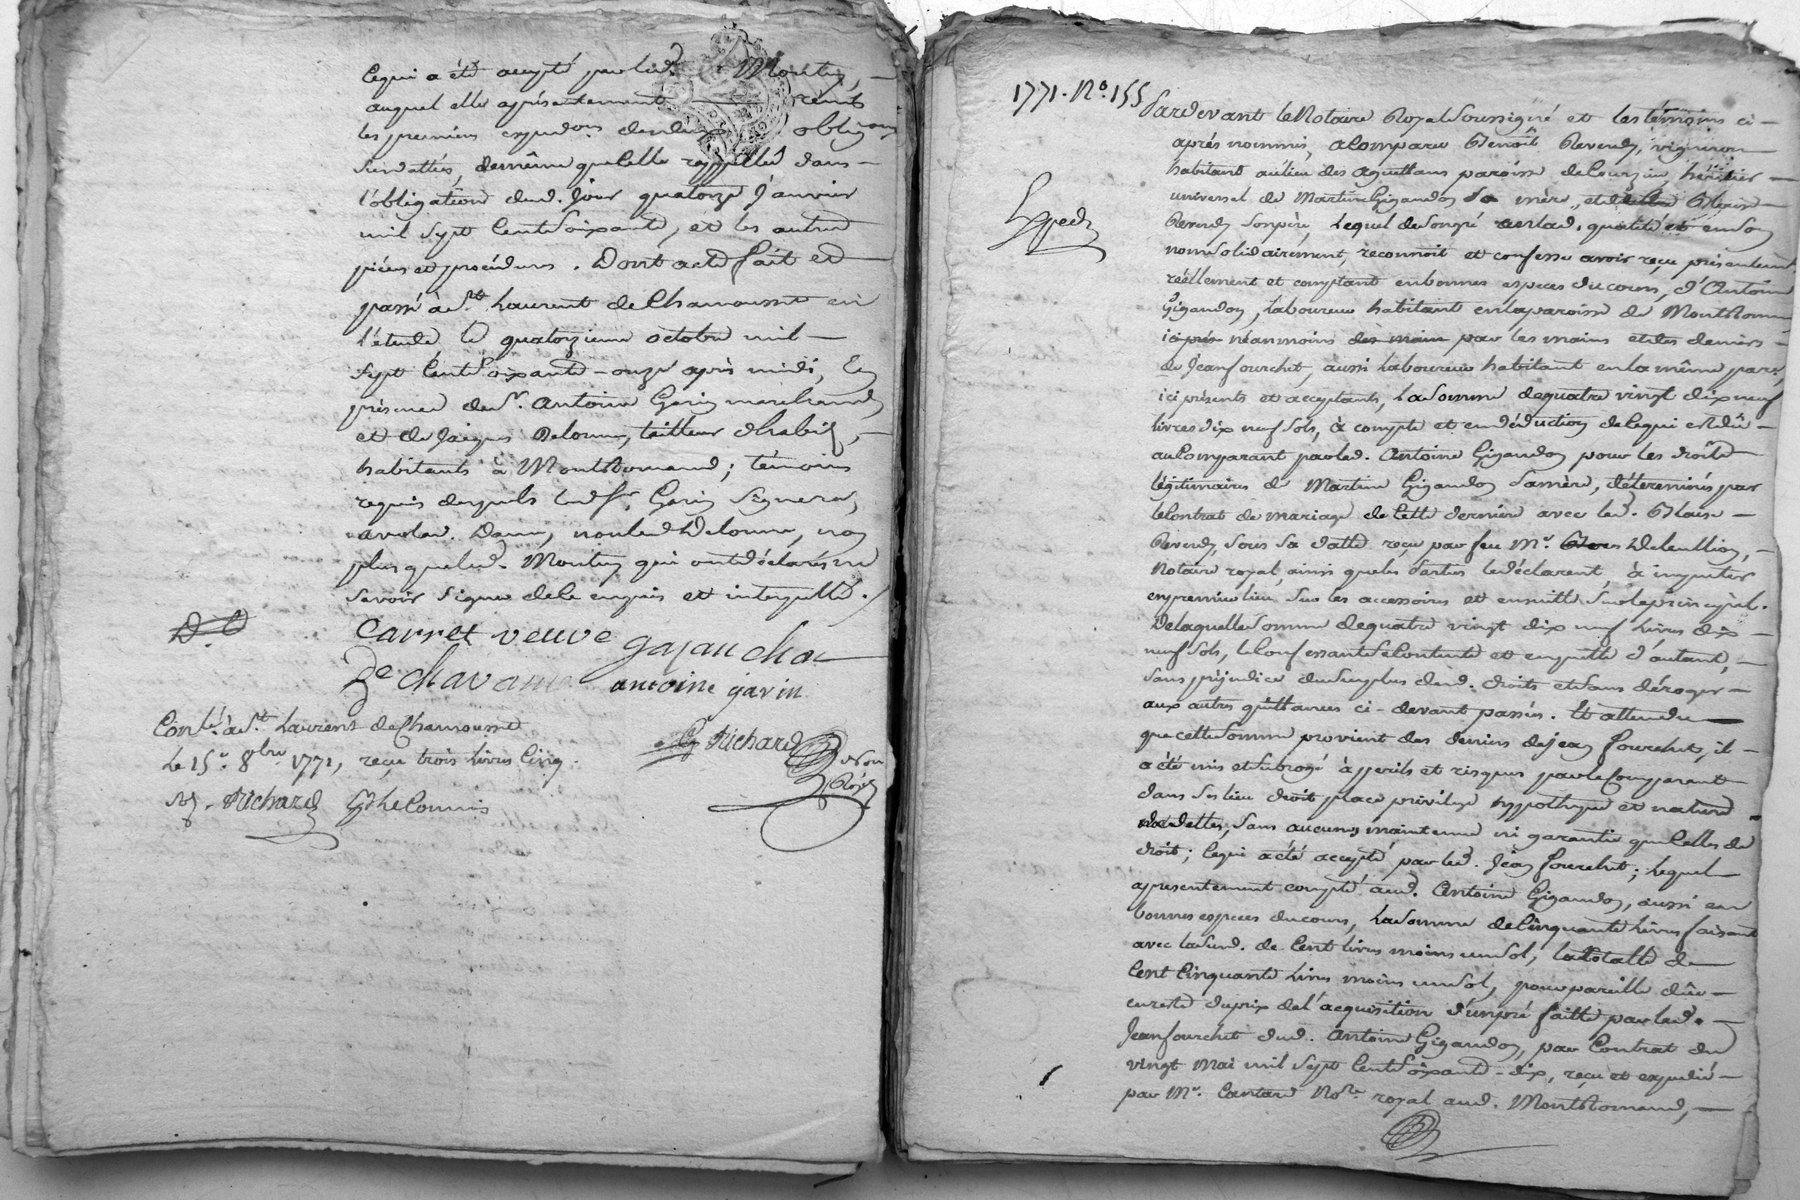 Cequi a été accepté par led. Montey,
auquel elle apprésentement remis
les premiers expedons desdeux oblig.ons
susdattées, demême quecelle rappellée dans
l'obligation dud. jour quatorze Janvier
mil sept Centsoixante, et les autres
pièces et procédures. Dont acte fait et
passé à St. Laurent de Chamousset en
l'étude le quatorzieme octobre mil
sept Centsoixante-onze après midi, En
présence de Sr. Antoine Garin marchand
et de Jacques Delorme, tailleur d'habits,
habitants à Montromand; témoins
requis desquels led. Sr. Garin Signera,
avec lad. Dame, non led Delorme, non
plus que led. Montey qui ont déclaré ne
Savoir Signer de ce enquis et interpellé.
Carret veuve gajau cha
De chavanne antoine garin
Conlé. à St. Laurent de Chamousset
Le 15e. 8bre 1771, reçu trois Livres Cinq s.
Richard Richard
Comis Nore
Royal
1771. No. 155
Pardevant le Notaire Royal Soussigné et les témoins ci-
après nommés, a Comparu Benoît Reverdy, vigneron
habitant au lieu des aguettans paroisse de Courzieu, héritier
Expedié
universel de Martine Gigandon Sa mère, et de Blaise
Reverdy Son père, Lequel de Songré en lad. qualité et en Son
nom Solidairement, reconnoit et confesse avoir reçu présentement
réellement et comptant en bonnes espèces du cours, d'Antoine
Gigandon, Laboureur habitant en la paroisse de Montromand
néanmoins par les mains et des deniers
de Jean fourchet, aussi Laboureur habitant en la même parse,
ici présents et acceptants, La Somme de quatre vingt dix neuf
livres dix neuf Sols, à compte et en déduction de ce qui est dû
au Comparant par led. Antoine Gigandon pour les droits
légitimaires de Martine Gigandon Sa mère, déterminés par
le Contrat de mariage de Cette dernière avec led. Blaise
Reverdy, Sous Sa datte reçu par feu Me. Deleullion,
Notaire royal, ainsi que les Parties le déclarent, à imputer
en premier lieu Sur les accessoires et ensuitte Sur le principal.
De laquelle Somme de quatre vingt dix neuf Livres dix
neuf Sols, le Confessant Se Contente et en quitte d'autant,
Sans préjudice du Surplus desd. droits et Sans déroger
aux autres quittances ci-devant passées. Et attendu
que cette Somme provient des deniers de jean fourchet, il
a été mis et Subrogé à Ses perils et risques par le Comparant
dans Ses lieu droit place privilége hypotheque et nature
de dettes, Sans aucunes maintenue ni garantie que Celles de
droit; Cequi a été accepté par led. Jean fourchet; Lequel
apresentement compté aud. Antoine Gigandon, aussi en
bonnes espèces du cours, La Somme de Cinquante Livres faisant
avec la Susd. de Cent livres moins un Sol, la totalle de
Cent Cinquante Livres moins un Sol, pour pareille dûe
en reste du prix de l'acquisition d'un pré faitte par led.
Jean fourchet dud. Antoine Gigandon, par Contrat du
vingt Mai mil Sept Cent Soixante-dix, reçu et expedié
par Me. Cantard Nore. royal aud. Montromand,